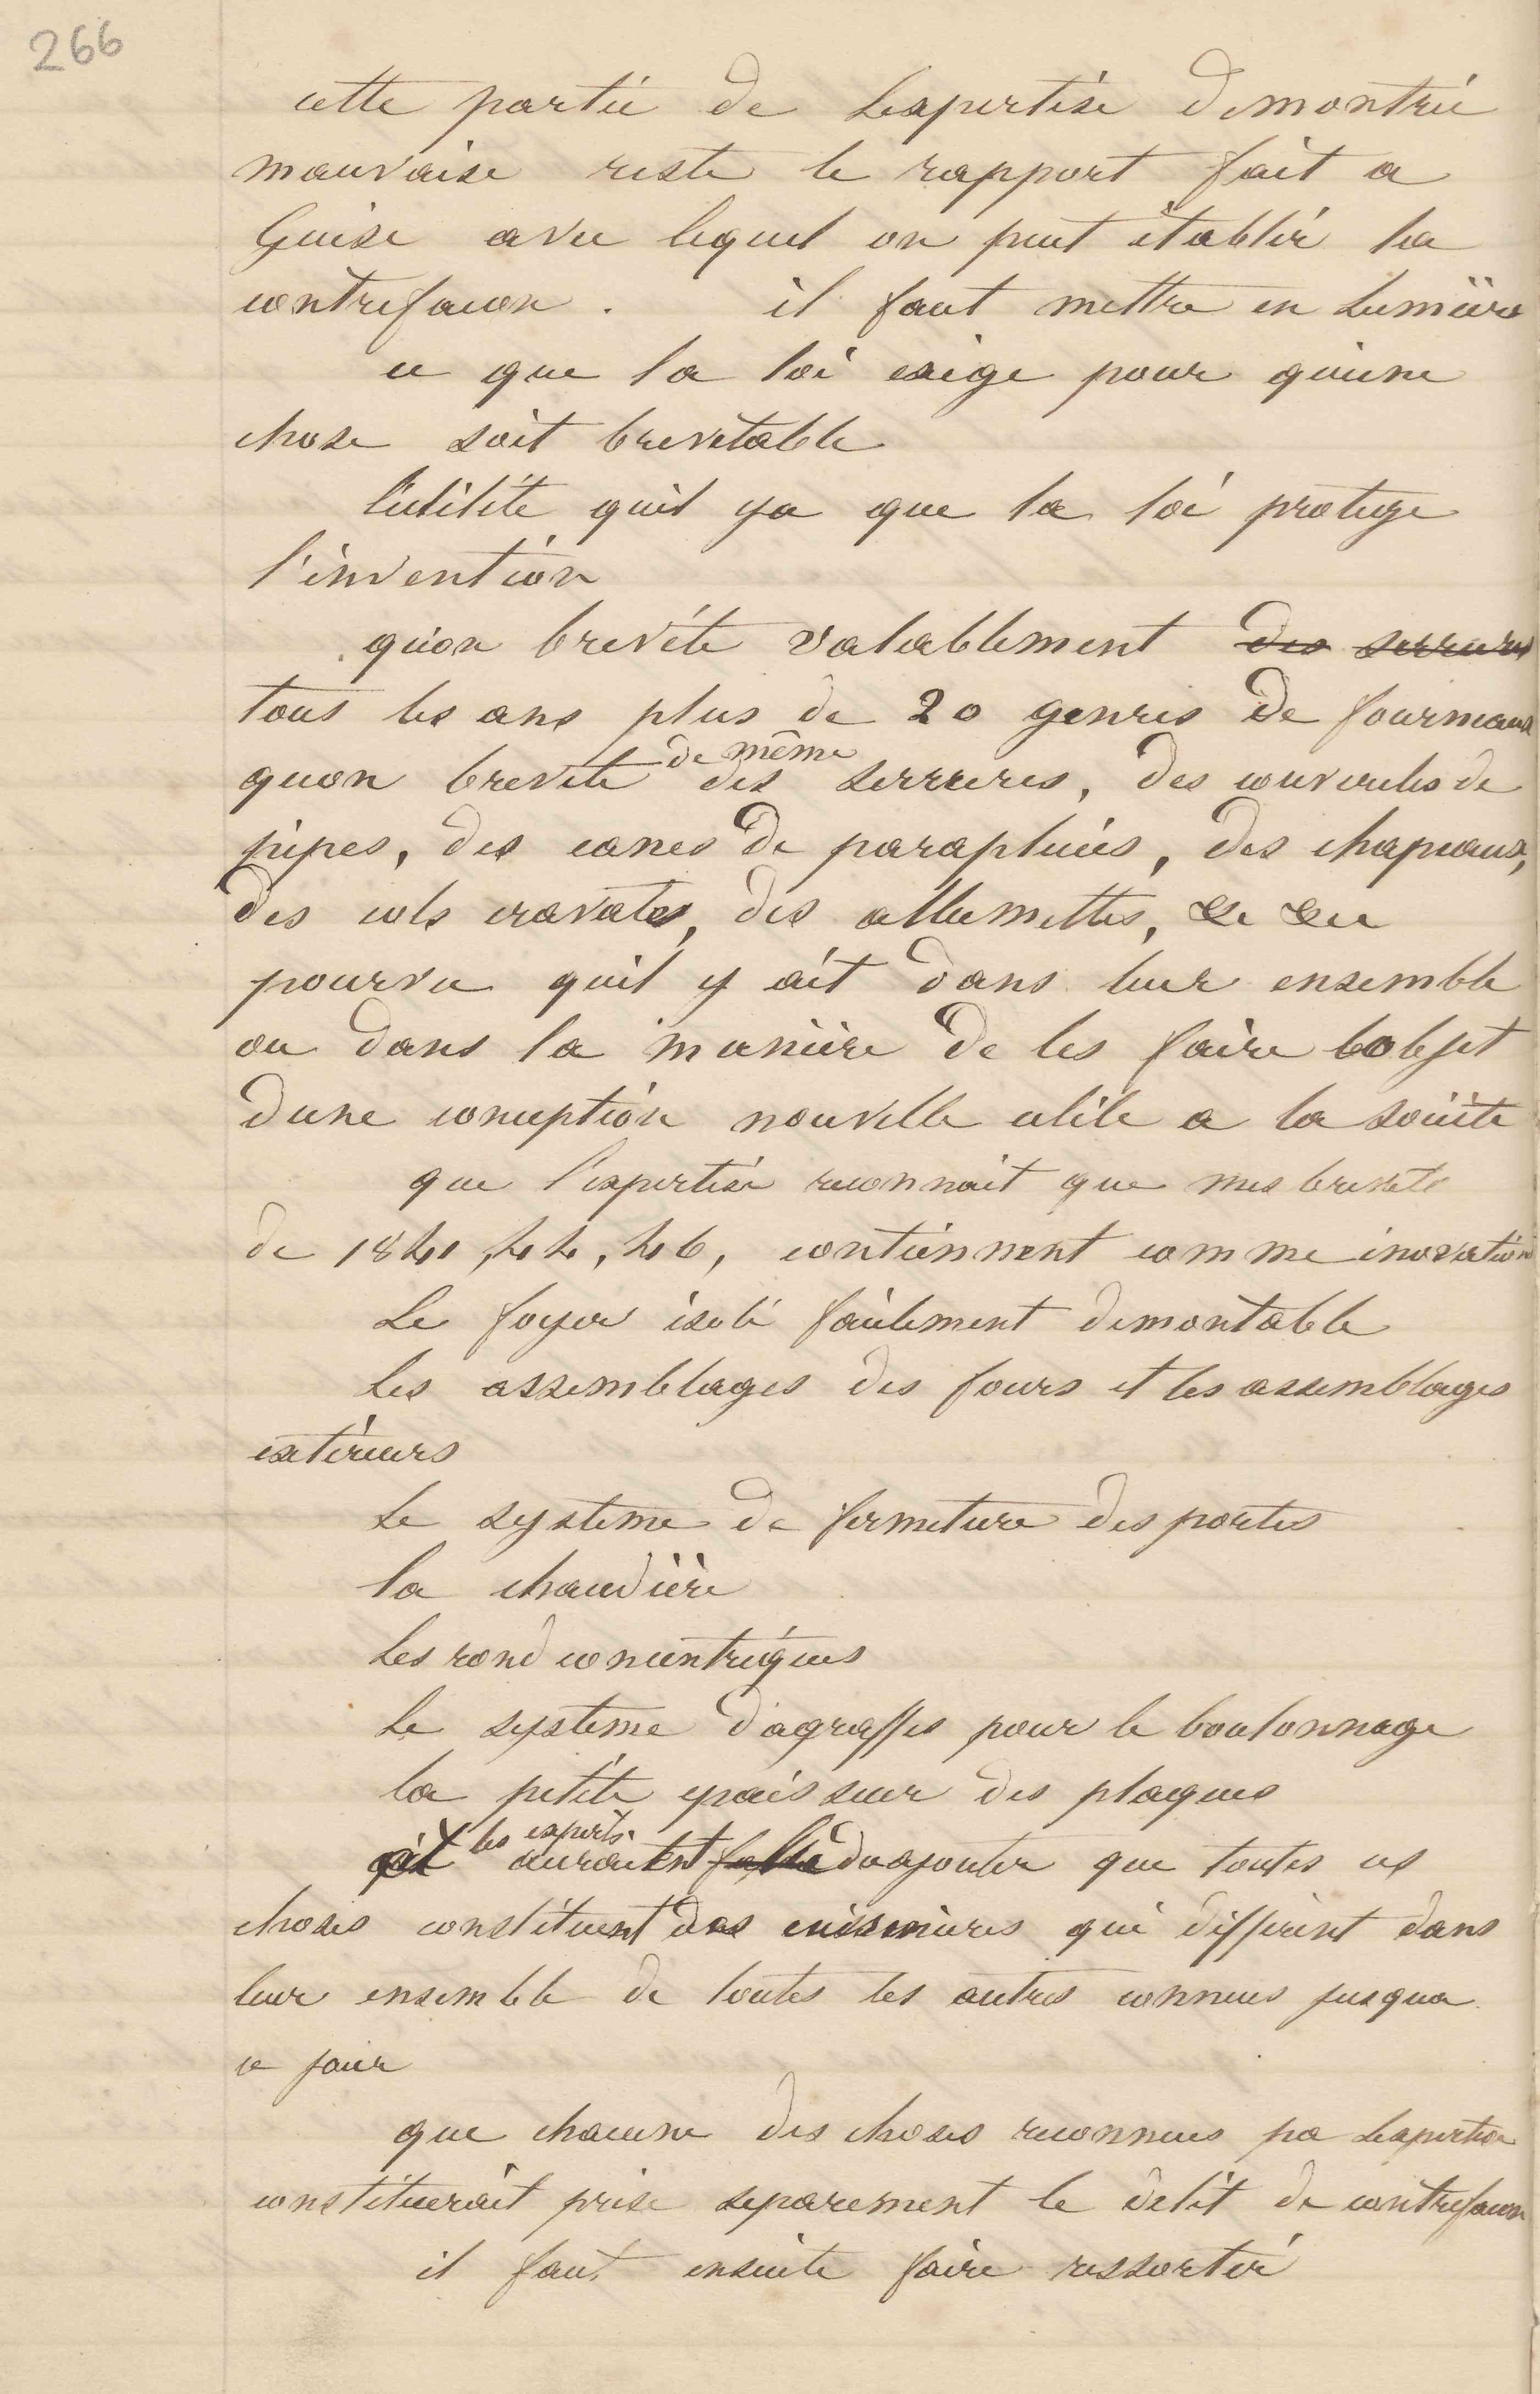 266
cette partie de Lexpertise demontrée
mauvaise reste le rapport fait a
Guise avec lequel on peut établir la
contrefacon. il faut mettre en Lumière
ce que la loi exige pour qu'une
chose soit brevetable
l'utilité quil ya que la loi protege
l'invention
qu'on brevéte valablement des serrures
tous les ans plus de 20 genres de fourneaux
de même
quon brevete des serrures, des couvercles de
pipes, des canes de parapluies, des chapeaux,
des cols cravates, des allumettes, &c &c
pourvu quil y ait dans leur ensemble
ou dans la manière de les faire lobjet
dune conception nouvelle utile a la société
que l'expertise reconnait que mes brevets
de 1840, 44, 46, contiennent comme inovation
Le foyer isolé facilement demontable
Les assemblages des fours et les assemblages
extérieurs
Le systeme de fermeture des portes
la chaudière
Les rond concentriques
Le systeme d'agraffes pour le boulonnage
la petite epaisseur des plaques
les experts
auraient du ajouter que toutes ces
choses constituent des cuisinieres qui differint dans
leur ensemble de toutes les autres connues jusqua
ce jour
que chacune des choses reconnues pa Lexpertise
constituerait prise separement le delit de contrefacon
il faut ensuite faire ressortir